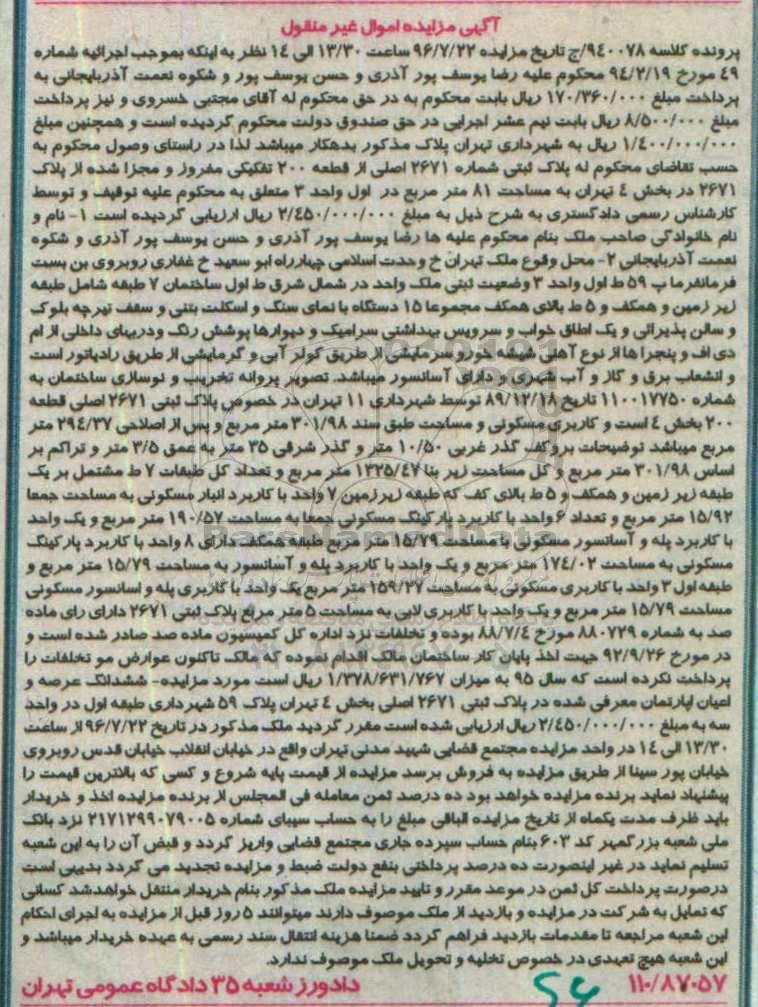 آگهی مزایده اموال غیر منقول
پرونده کلاسه ۹۴۰۰۷۸/ج تاریخ مزایده ۹۶/۷/۲۲ ساعت ۱۳/۳۰ الی ۱۴ نظر به اینکه بموجب اجرائیه شماره
۴۹ مورخ ۹۴/۲/۱۹ محکوم علیه رضا یوسف پور آذری و حسن یوسف پور و شکوه نعمت آذربایجانی به
پرداخت مبلغ ۱۷۰/۳۶۰/۰۰۰ ریال بابت محکوم به در حق محکوم له آقای مجتبی خسروی و نیز پرداخت
مبلغ ۸/۵۰۰/۰۰۰ ریال بابت نیم عشر اجرایی در حق صندوق دولت محکوم گردیده است و همچنین مبلغ
۱/۴۰۰/۰۰۰/۰۰۰ ریال به شهرداری تهران پلاک مذکور بدهکار میباشد لذا در راستای وصول محکوم به
حسب تقاضای محکوم له پلاک ثبتی شماره ۲۶۷۱ اصلی از قطعه ۲۰۰ تفکیکی مفروز و مجزا شده از پلاک
۲۶۷۱ در بخش ۴ تهران به مساحت ۸۱ متر مربع در اول واحد ۳ متعلق به محکوم علیه توقیف و توسط
کارشناس رسمی دادگستری به شرح ذیل به مبلغ ۲/۴۵۰/۰۰۰/۰۰۰ ریال ارزیابی گردیده است ۱- نام و
نام خانوادگی صاحب ملک بنام محکوم علیه ها رضا یوسف پور آذری و حسن یوسف پور آذری و شکوه
نعمت آذربایجانی ۲- محل وقوع ملک تهران خ وحدت اسلامی چهارراه ابو سعید خ غفاری روبروی بن بست
فرمانفرما پ ۵۹ ط اول واحد ۳ وضعیت ثبتی ملک واحد در شمال شرق ط اول ساختمان ۷ طبقه شامل طبقه
زیر زمین و همکف و ۵ ط بالای همکف مجموعا ۱۵ دستگاه با نمای سنگ و اسکلت بتنی و سقف تیرچه بلوک
و سالن پذیرائی و یک اطاق خواب و سرویس بهداشتی سرامیک و دیوارها پوشش رنگ ودربهای داخلی از ام
دی اف و پنجرا ها از نوع آهنی شیشه خورو سرمایشی از طریق کولر آبی و گرمایشی از طریق رادیاتور است
و انشعاب برق و گاز و آب شهری و دارای آسانسور میباشد. تصویر پروانه تخریب و نوسازی ساختمان به
شماره ۱۱۰۰۱۷۷۵۰ تاریخ ۸۹/۱۲/۱۸ توسط شهرداری ۱۱ تهران در خصوص پلاک ثبتی ۲۶۷۱ اصلی قطعه
۲۰۰ بخش ۴ است و کاربری مسکونی و مساحت طبق سند ۳۰۱/۹۸ متر مربع و پس از اصلاحی ۲۹۴/۳۷ متر
مربع میباشد توضیحات بروکف گذر غربی ۱۰/۵۰ متر و گذر شرقی ۳۵ متر به عمق ۳/۵ متر و تراکم بر
اساس ۳۰۱/۹۸ متر مربع و کل مساحت زیر بنا ۱۳۲۵/۴۷ متر مربع و تعداد کل طبقات ۷ ط مشتمل بر یک
طبقه زیر زمین و همکف و ۵ ط بالای کف که طبقه زیرزمین ۷ واحد با کاربرد انبار مسکونی به مساحت جمعا
۱۵/۹۲ متر مربع و تعداد ۶ واحد با کاربرد پارکینگ مسکونی جمعا به مساحت ۱۹۰/۵۷ متر مربع و یک واحد
با کاربرد پله و آسانسور مسکونی با مساحت ۱۵/۷۹ متر مربع طبقه همکف دارای ۸ واحد با کاربرد پارکینگ
مسکونی به مساحت ۱۷۴/۰۲ متر مربع و یک واحد با کاربرد پله و آسانسور به مساحت ۱۵/۷۹ متر مربع و
طبقه اول ۳ واحد با کاربری مسکونی به مساحت ۱۵۹/۲۷ متر مربع یک واحد با کاربری پله و اسانسور مسکونی
مساحت ۱۵/۷۹ متر مربع و یک واحد با کاربری لابی به مساحت ۵ متر مربع پلاک ثبتی ۲۶۷۱ دارای رای ماده
صد به شماره ۸۸۰۷۲۹ مورخ ۸۸/۷/۴ بوده و تخلفات نزد اداره کل کمیسیون ماده صد صادر شده است و
در مورخ ۹۲/۹/۲۶ جهت اخذ پایان کار ساختمان مالک اقدام نموده که مالک تاکنون عوارض مو تخلفات را
پرداخت نکرده است که سال ۹۵ به میزان ۱/۳۷۸/۶۳۱/۷۶۷ ریال است مورد مزایده- ششدانگ عرصه و
اعیان اپارتمان معرفی شده در پلاک ثبتی ۲۶۷۱ اصلی بخش ۴ تهران پلاک ۵۹ شهرداری طبقه اول در واحد
سه به مبلغ ۲/۴۵۰/۰۰۰/۰۰۰ ریال ارزیابی شده است مقرر گردید ملک مذکور در تاریخ ۹۶/۷/۲۲ از ساعت
۱۳/۳۰ الی ۱۴ در واحد مزایده مجتمع قضایی شهید مدنی تهران واقع در خیابان انقلاب خیابان قدس روبروی
خیابان پور سینا از طریق مزایده به فروش برسد مزایده از قیمت پایه شروع و کسی که بالاترین قیمت را
پیشنهاد نماید برنده مزایده خواهد بود ده درصد ثمن معامله فی المجلس از برنده مزایده اخذ و خریدار
باید ظرف مدت یکماه از تاریخ مزایده الباقی مبلغ را به حساب سیبای شماره ۲۱۷۱۲۹۹۰۷۹۰۰۵ نزد بانک
ملی شعبه بزرگمهر کد ۶۰۳ بنام حساب سپرده جاری مجتمع قضایی واریز گردد و قبض آن را به این شعبه
تسلیم نماید در غیر اینصورت ده درصد پرداختی بنفع دولت ضبط و مزایده تجدید می گردد بدیهی است
درصورت پرداخت کل ثمن در موعد مقرر و تایید مزایده ملک مذکور بنام خریدار منتقل خواهدشد کسانی
که تمایل به شرکت در مزایده و بازدید از ملک موصوف دارند میتوانند ۵ روز قبل از مزایده به اجرای احکام
این شعبه مراجعه تا مقدمات بازدید فراهم گردد ضمنا هزینه انتقال سند رسمی به عهده خریدار میباشد و
این شعبه هیچ تعهدی در خصوص تخلیه و تحویل ملک موصوف ندارد.
۱۱۰/۸۷۰۵۷ دادورز شعبه ۳۵ دادگاه عمومی تهران